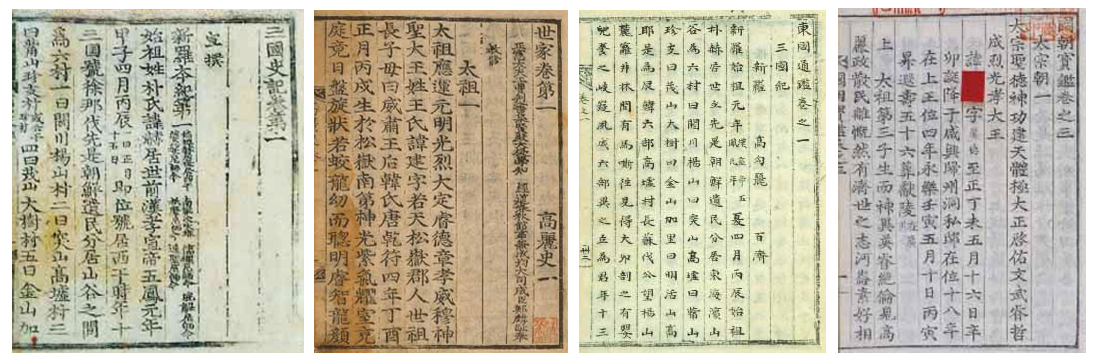 三國史記卷第一
宣撰
新羅本紀第一
始祖姓朴氏諱赫居世前漢孝宣帝五鳳元年
甲子四月丙辰一曰正月十五日即位號居西干時年十
三國號徐那伐先是朝鮮遺民分居山谷之間
爲六村一曰閼川楊山村二曰突山高墟村三
曰觜山珍支村四曰茂山大樹村五曰金山加
世家卷第一 高麗史一
教修
太祖一
太祖應運元明光烈大定睿德章孝威穆神
聖大王姓王氏諱建字若天松嶽郡人世祖
長子母曰威肅王后韓氏唐乾符四年丁酉
正月丙戌生於松嶽南第神光紫氣耀室充
庭竟日盤旋狀若蛟龍幼而聰明睿智龍顔
東國通鑑卷之一
三國紀
新羅 高句麗 百濟
新羅始祖元年 夏四月丙辰始祖
朴赫居世立先是朝鮮遺民分居東海濱山
谷爲六村曰閼川楊山曰突山高墟曰觜山
珍支曰茂山大樹曰金山加里曰明活山高
耶是爲辰韓六部高墟村長蘇伐公望楊山
麓蘿井林間有馬嘶往見得大卵剖之有嬰
兒養之岐嶷夙成六部異之立爲君年十三
國朝寶鑑卷之三
太宗朝一
太宗聖德神功建天體極大正啓佑文武睿哲
成烈光孝大王
諱 字 至正丁未五月十六日辛
卯誕降于咸興歸州洞私邸在位十八年
在上王位四年永樂壬寅五月十日丙寅
昇遐壽五十六葬獻陵
上 太祖第三子生而神異英睿絶倫見高
麗政散民離慨然有濟世之志河崙素好相